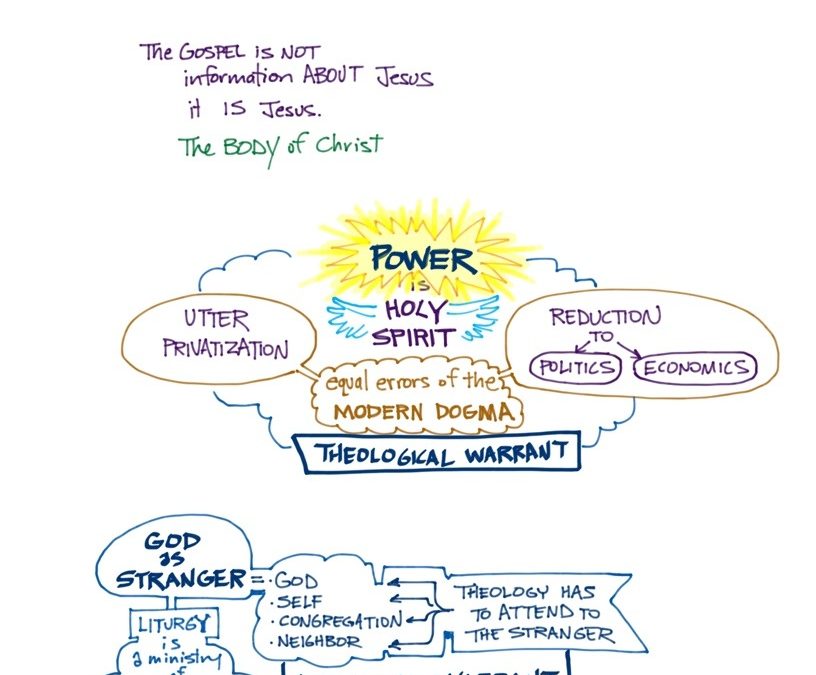 The GOSPEL is NOT
information ABOUT Jesus
it IS Jesus.
The BODY of Christ
POWER
is
HOLY
SPIRIT
UTTER
PRIVATIZATION
REDUCTION
TO
POLITICS
ECONOMICS
equal errors of the
MODERN DOGMA
THEOLOGICAL WARRANT
GOD
as
STRANGER =
· GOD
· SELF
· CONGREGATION
· NEIGHBOR
THEOLOGY HAS
TO ATTEND TO
THE STRANGER
LITURGY
is
a ministry
of